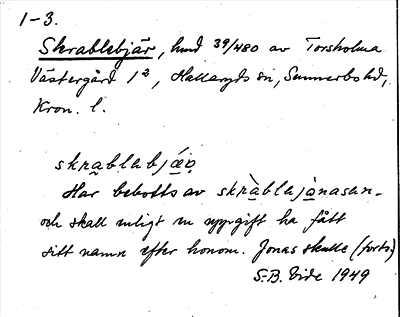 1-3.
Skrablebjär, hmd 39/480 av Torsholma
Västergård 1², Hallaryds sn, Sunnerbo hd,
Kron. l.
skrablabjǽr
Har bebotts av skràblajònasan-
och skall enligt en uppgift ha fått
sitt namn efter honom. Jonas skulle (forts)
S.B. Vide 1949